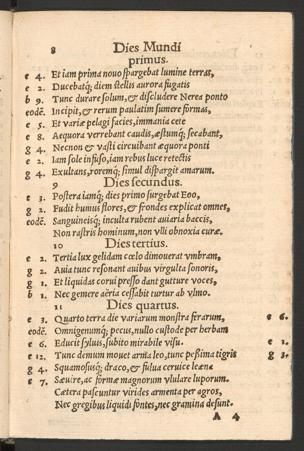 8 Dies Mundi
primus.
e 4. Et iam prima nouo spargebat lumine terras,
e 2. Ducebatq; diem stellis aurora fugatis
b 9. Tunc durare solum, & discludere Nerea ponto
eodē. Incipit, & rerum paulatim sumere formas,
e 5. Et variæ pelagi facies, immania cete
e 8. Aequora verrebant caudis, æstumq; secabant,
g 4. Necnon & vasti circuibant æquora ponti
e 2. Iam sole infuso, iam rebus luce retectis
g 4. Exultans, roremq; simul dispargit amarum.
9 Dies secundus.
e 3. Postera iamq; dies primo surgebat Eoo,
g 2. Fudit humus flores, & frondes explicat omnes,
eodē. Sanguineisq; inculta rubent auiaria baccis,
Non rastris hominum, non vlli obnoxia curæ.
10 Dies tertius.
e 2. Tertia lux gelidam cœlo dimouerat vmbram,
g 2. Auia tunc resonant auibus virgulta sonoris,
g 1. Et liquidas corui presso dant gutture voces,
b 1. Nec gemere aëria cessabit turtur ab vlmo.
11 Dies quartus.
e 3. Quarto terra die variarum monstra ferarum, e 6.
eodē. Omnigenumq; pecus, nullo custode per herbam
e 6. Educit syluis, subito mirabile visu. e 1.
e 12. Tunc demum mouet arma leo, tunc pessima tigris g 3.
g 4. Squamosusq; draco, & fulua ceruice leæna
e 7. Sæuire, ac formæ magnorum vlulare luporum.
Cætera pascuntur virides armenta per agros,
Nec gregibus liquidi fontes, nec gramina desunt.
A 4